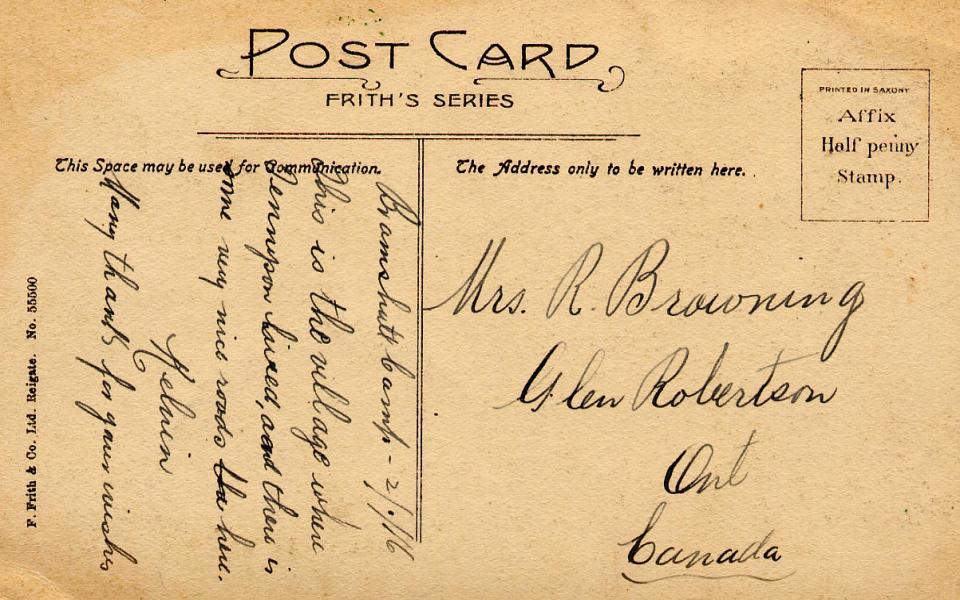 POST CARD
FRITH'S SERIES
PRINTED IN SAXONY
Affix
Half penny
Stamp.
This Space may be used for Communication.
The Address only to be written here.
Bramshott Camp - 2/./16
This is the village where
Tennyson lived, and there is
some very nice roads here.
Kelvin
Many thanks for your wishes
Mrs. R. Browning
Glen Robertson
Ont
Canada
F. Frith & Co. Ltd. Reigate. No. 55500